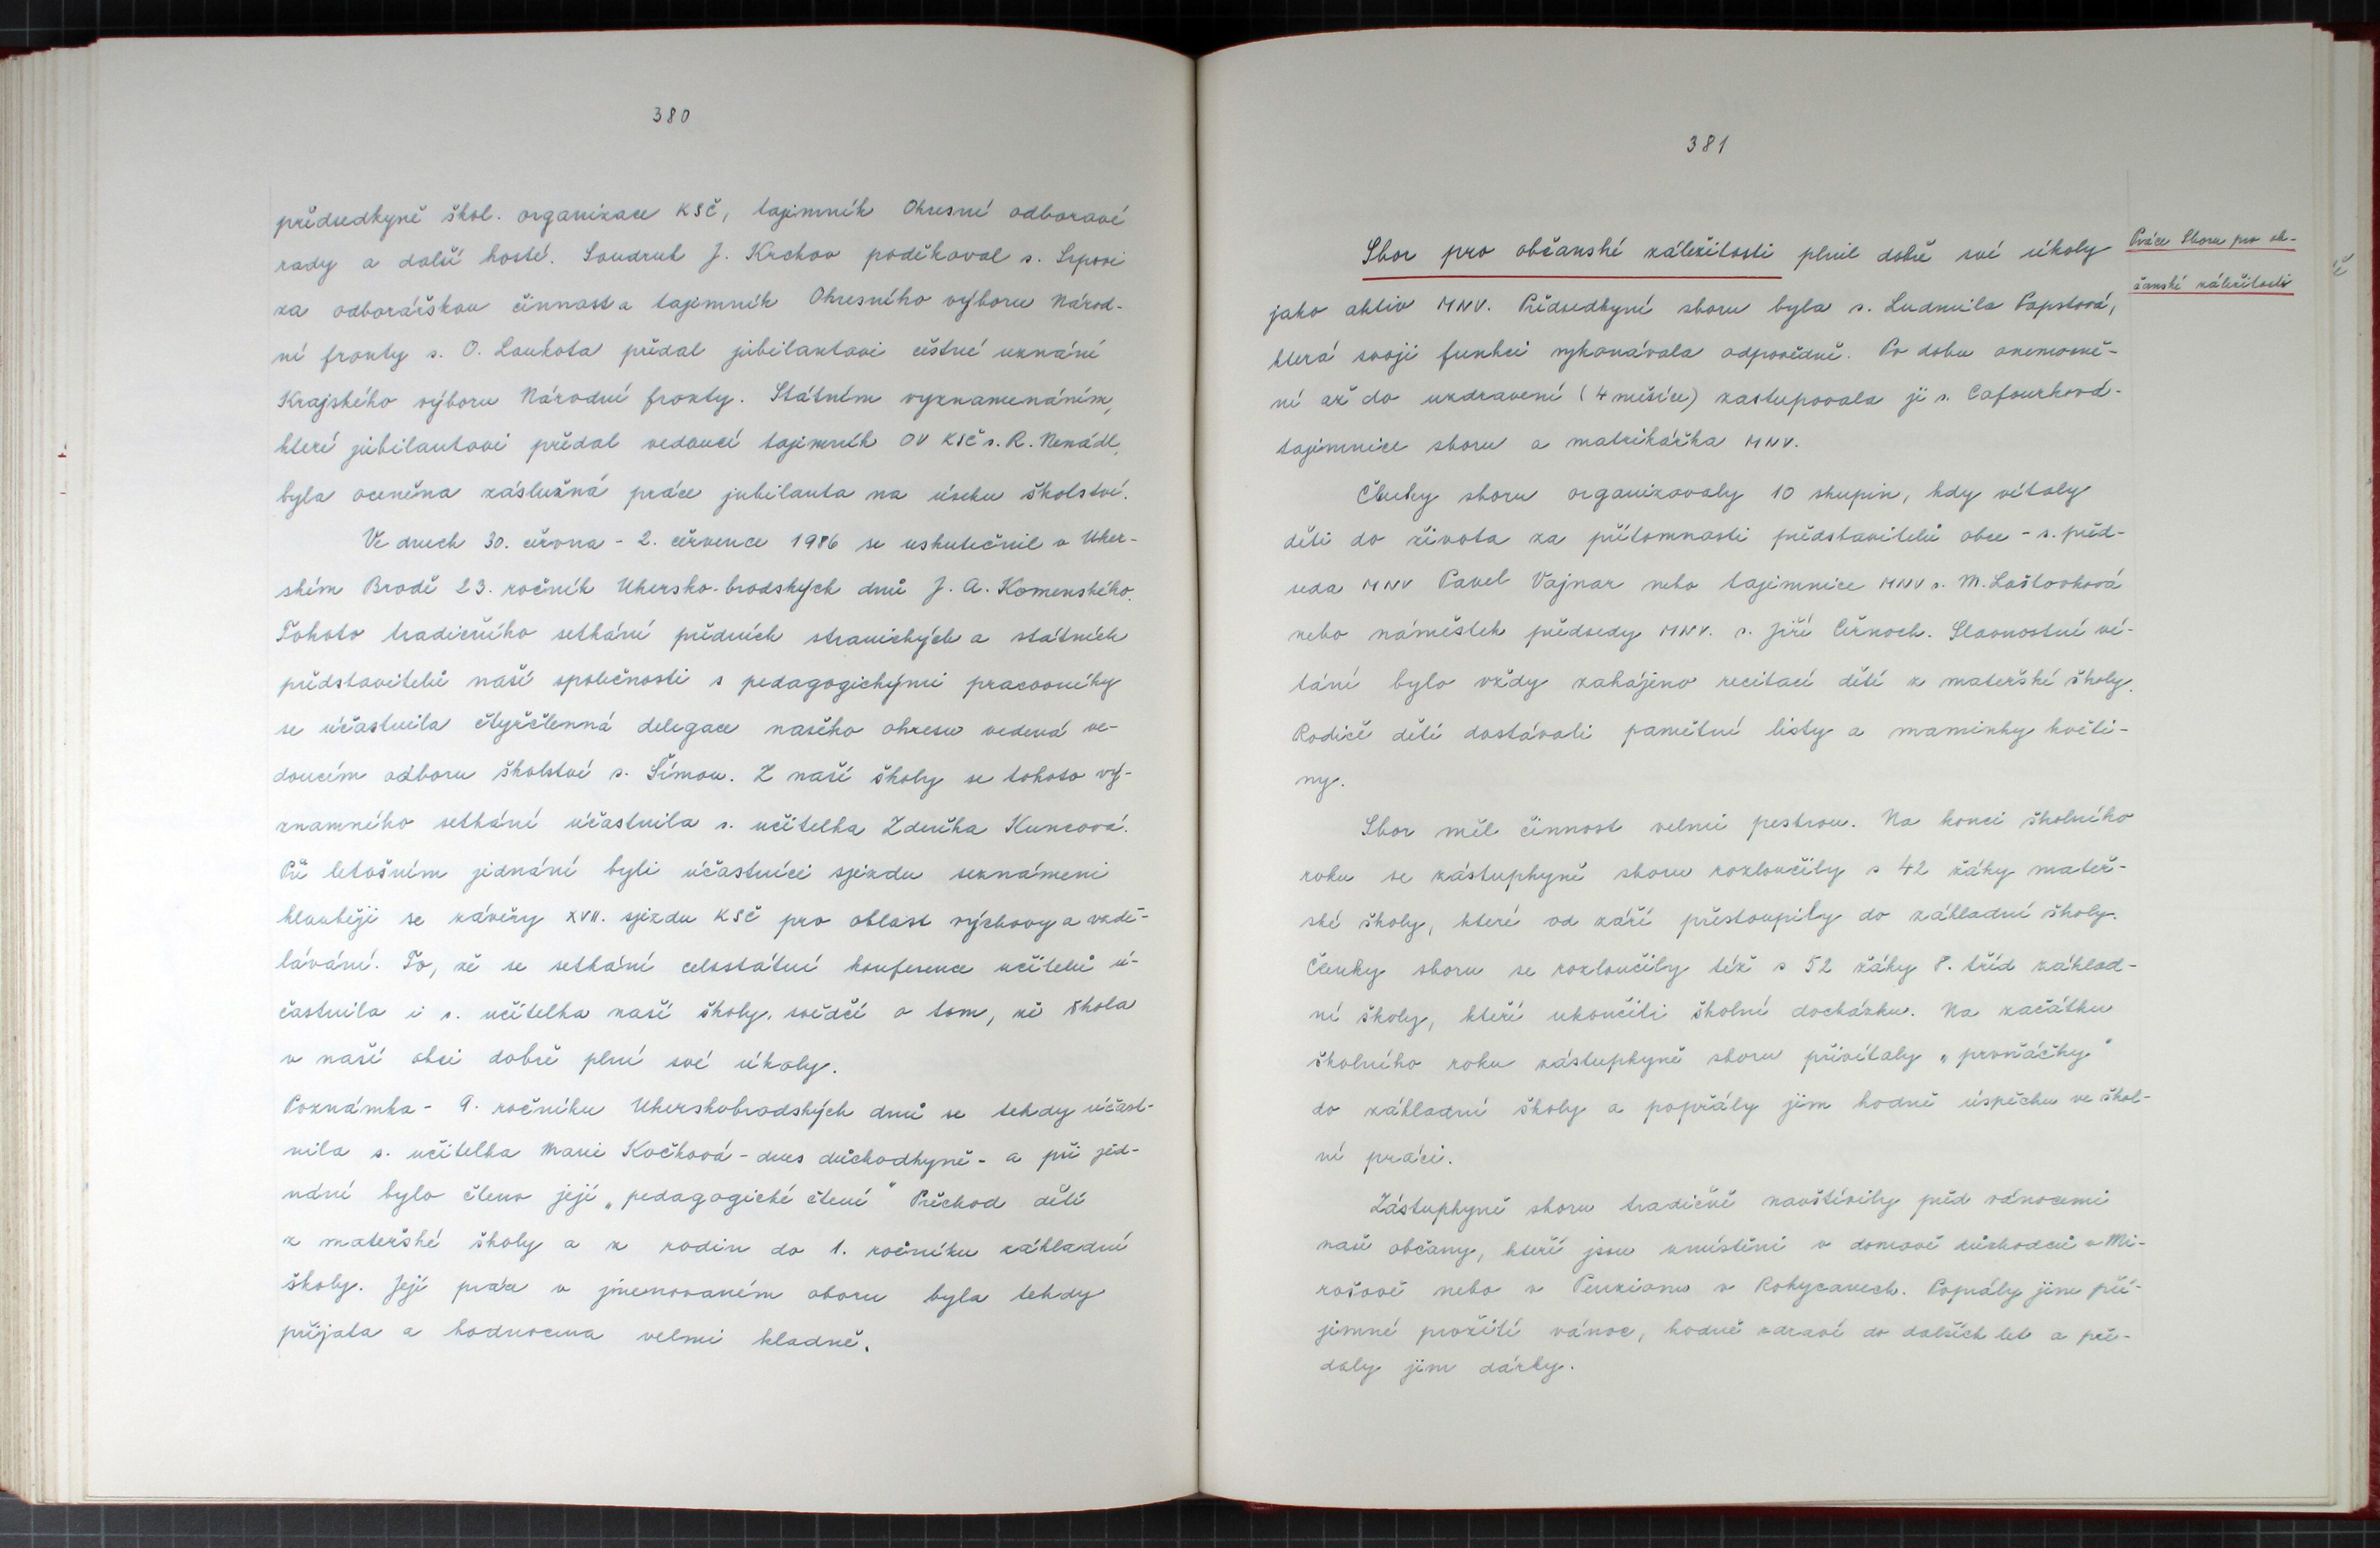 380
předsedkyně škol. organizace KSČ, tajemník Okresní odborové
rady a další hosté. Soudruh J. Krchov poděkoval s. Srpovi
za odborářskou činnost a tajemník Okresního výboru Národ-
ní fronty s. O. Loukota předal jubilantovi čestné uznání
Krajského výboru Národní fronty. Státním vyznamenáním,
které jubilantovi předal vedoucí tajemník OV KSČ s. R. Nenádl,
byla oceněna záslužná práce jubilanta na úseku školství.
Ve dnech 30. června - 2. července 1986 se uskutečnil v Uher-
ském Brodě 23. ročník Uhersko-brodských dnů J. A. Komenského.
Tohoto tradičního setkání předních stranických a státních
představitelů naší společnosti s pedagogickými pracovníky
se účastnila čtyřčlenná delegace našeho okresu vedená ve-
doucím odboru školství s. Šímou. Z naší školy se tohoto vý-
znamného setkání účastnila s. učitelka Zdeňka Kuncová.
Při letošním jednání byli účastníci sjezdu seznámeni
hlouběji se závěry XVII. sjezdu KSČ pro oblast výchovy a vzdě-
lávání. To, že se setkání celostátní konference učitelů ú-
častnila i s. učitelka naší školy, svědčí o tom, že škola
v naší obci dobře plní své úkoly.
Poznámka - 9. ročníku Uherskobrodských dnů se tehdy účast-
nila s. učitelka Marie Kočková - dnes důchodkyně - a při jed-
nání bylo čteno její „pedagogické čtení" Přechod dětí
z mateřské školy a z rodin do 1. ročníku základní
školy. Její práce v jmenovaném oboru byla tehdy
přijata a hodnocena velmi kladně.
381
Práce Sboru pro ob-
čanské záležitosti
Sbor pro občanské záležitosti plnil dobře své úkoly
jako aktiv MNV. Předsedkyní sboru byla s. Ludmila Papstová,
která svoji funkci vykonávala odpovědně. Po dobu onemocně-
ní až do uzdravení (4 měsíce) zastupovala ji s. Cafourková-
tajemnice sboru a matrikářka MNV.
Členky sboru organizovaly 10 skupin, kdy vítaly
děti do života za přítomnosti představitelů obce - s. před-
seda MNV Pavel Vajnar nebo tajemnice MNV s. M. Laštovková
nebo náměstek předsedy MNV. s. Jiří Černoch. Slavnostní ví-
tání bylo vždy zahájeno recitací dětí z mateřské školy.
Rodiče dětí dostávali pamětní listy a maminky květi-
ny.
Sbor měl činnost velmi pestrou. Na konci školního
roku se zástupkyně sboru rozloučily s 42 žáky mateř-
ské školy, které od září přestoupily do základní školy.
Členky sboru se rozloučily též s 52 žáky 8. tříd základ-
ní školy, kteří ukončili školní docházku. Na začátku
školního roku zástupkyně sboru přivítaly „prvňáčky"
do základní školy a popřály jim hodně úspěchu ve škol-
ní práci.
Zástupkyně sboru tradičně navštívily před vánocemi
naše občany, kteří jsou umístěni v domově důchodců v Mi-
rošově nebo v Penzionu v Rokycanech. Popřály jim pří-
jemné prožití vánoc, hodně zdraví do dalších let a pře-
daly jim dárky.